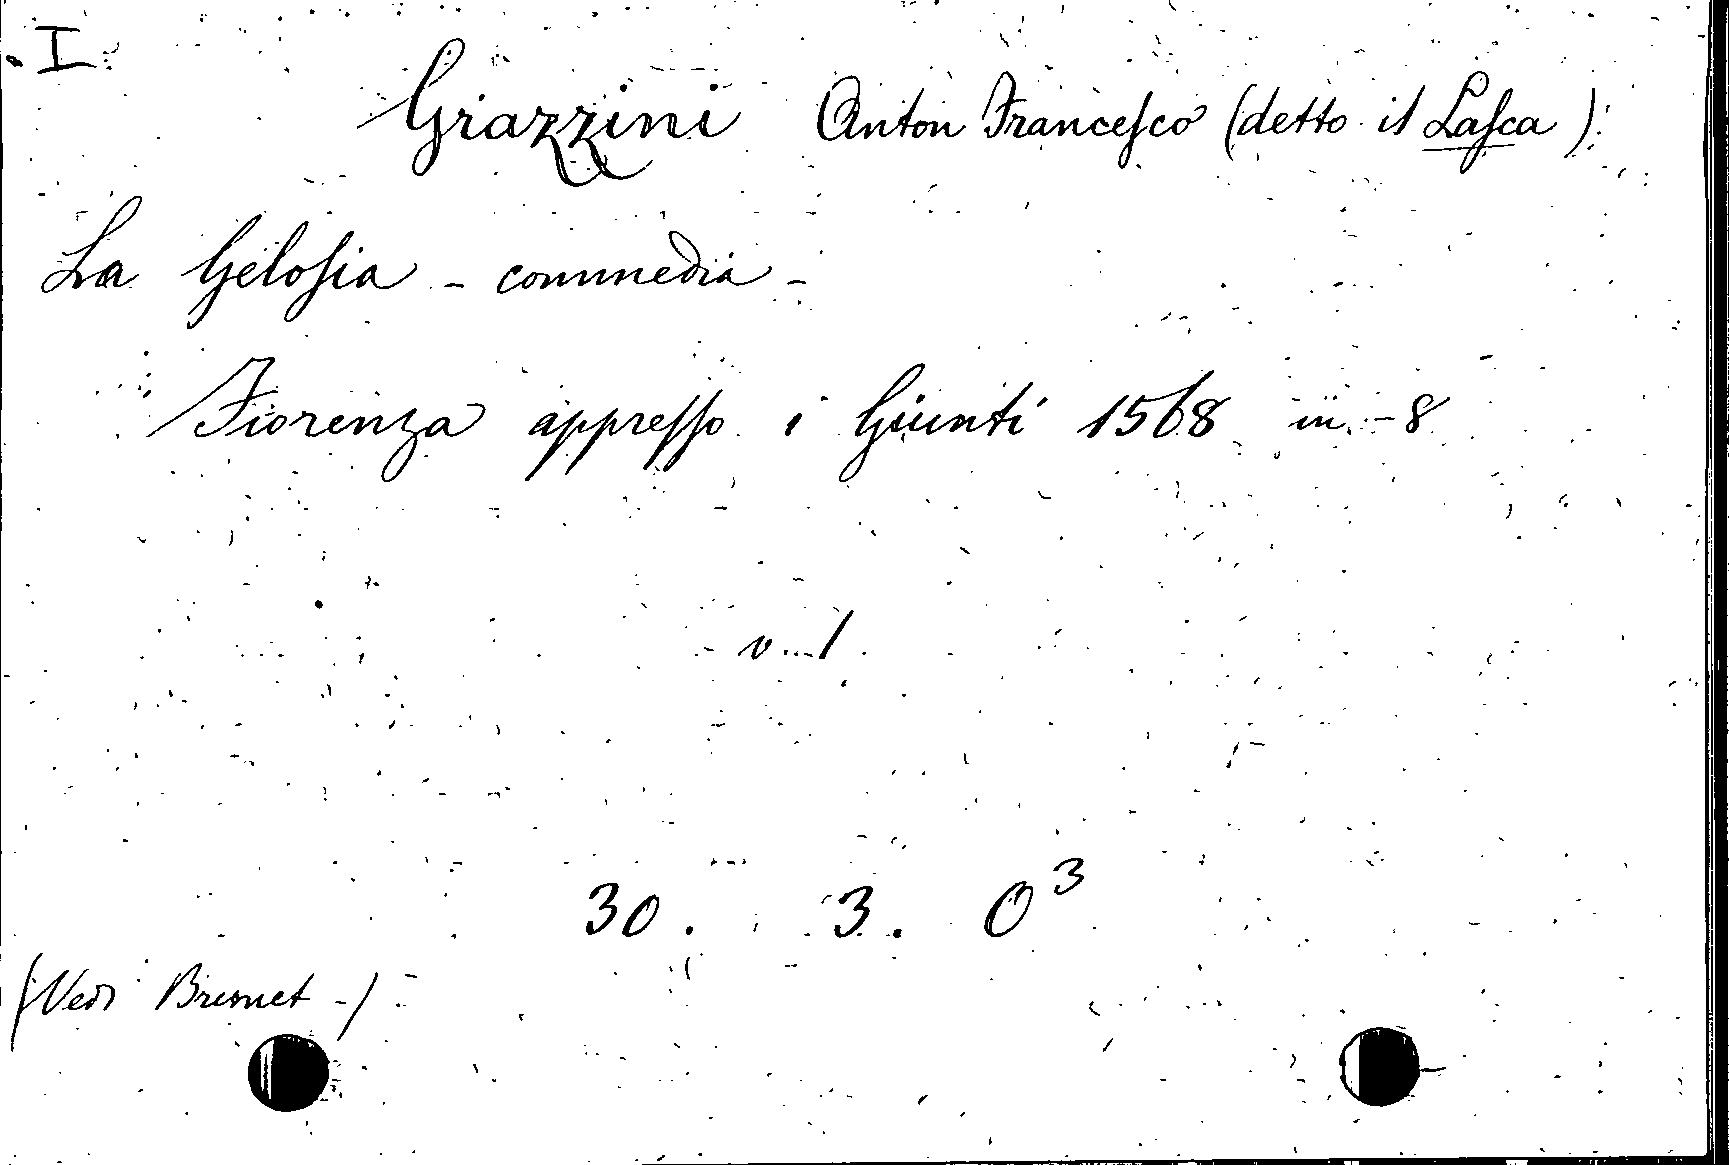 I
Grazzini Anton Franceſco (detto il Laſca)
La Geloſia - commedia -
Fiorenza appreſſo i Giunti 1568 in - 8
v. 1
30. 3. O³
(Vedi Brunet -)